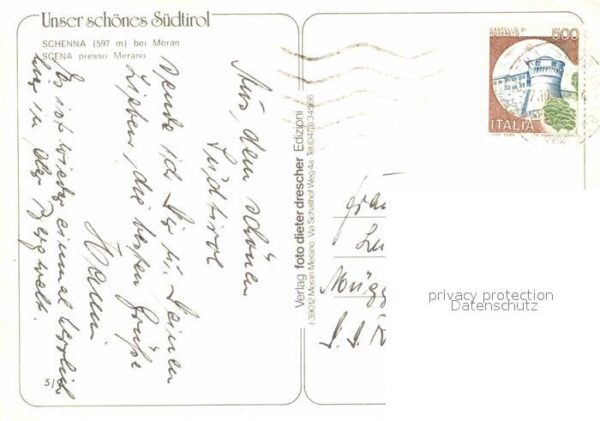 Unser schönes Südtirol
SCHENNA (597 m) bei Meran
SCENA presso Merano
Aus dem schönen
Südtirol
sende ich Dir u. Deinen
Lieben, die besten Grüße
Hanni
Es ist wieder einmal herrlich
hier in der Bergwelt.
5/9
Verlag foto dieter drescher Edizioni
I 39012 Meran Merano. Via Schaffhof Weg 4a Tel. 0473/34566
CASTELLO DI
ROVERETO
500
ITALIA
privacy protection
Datenschutz